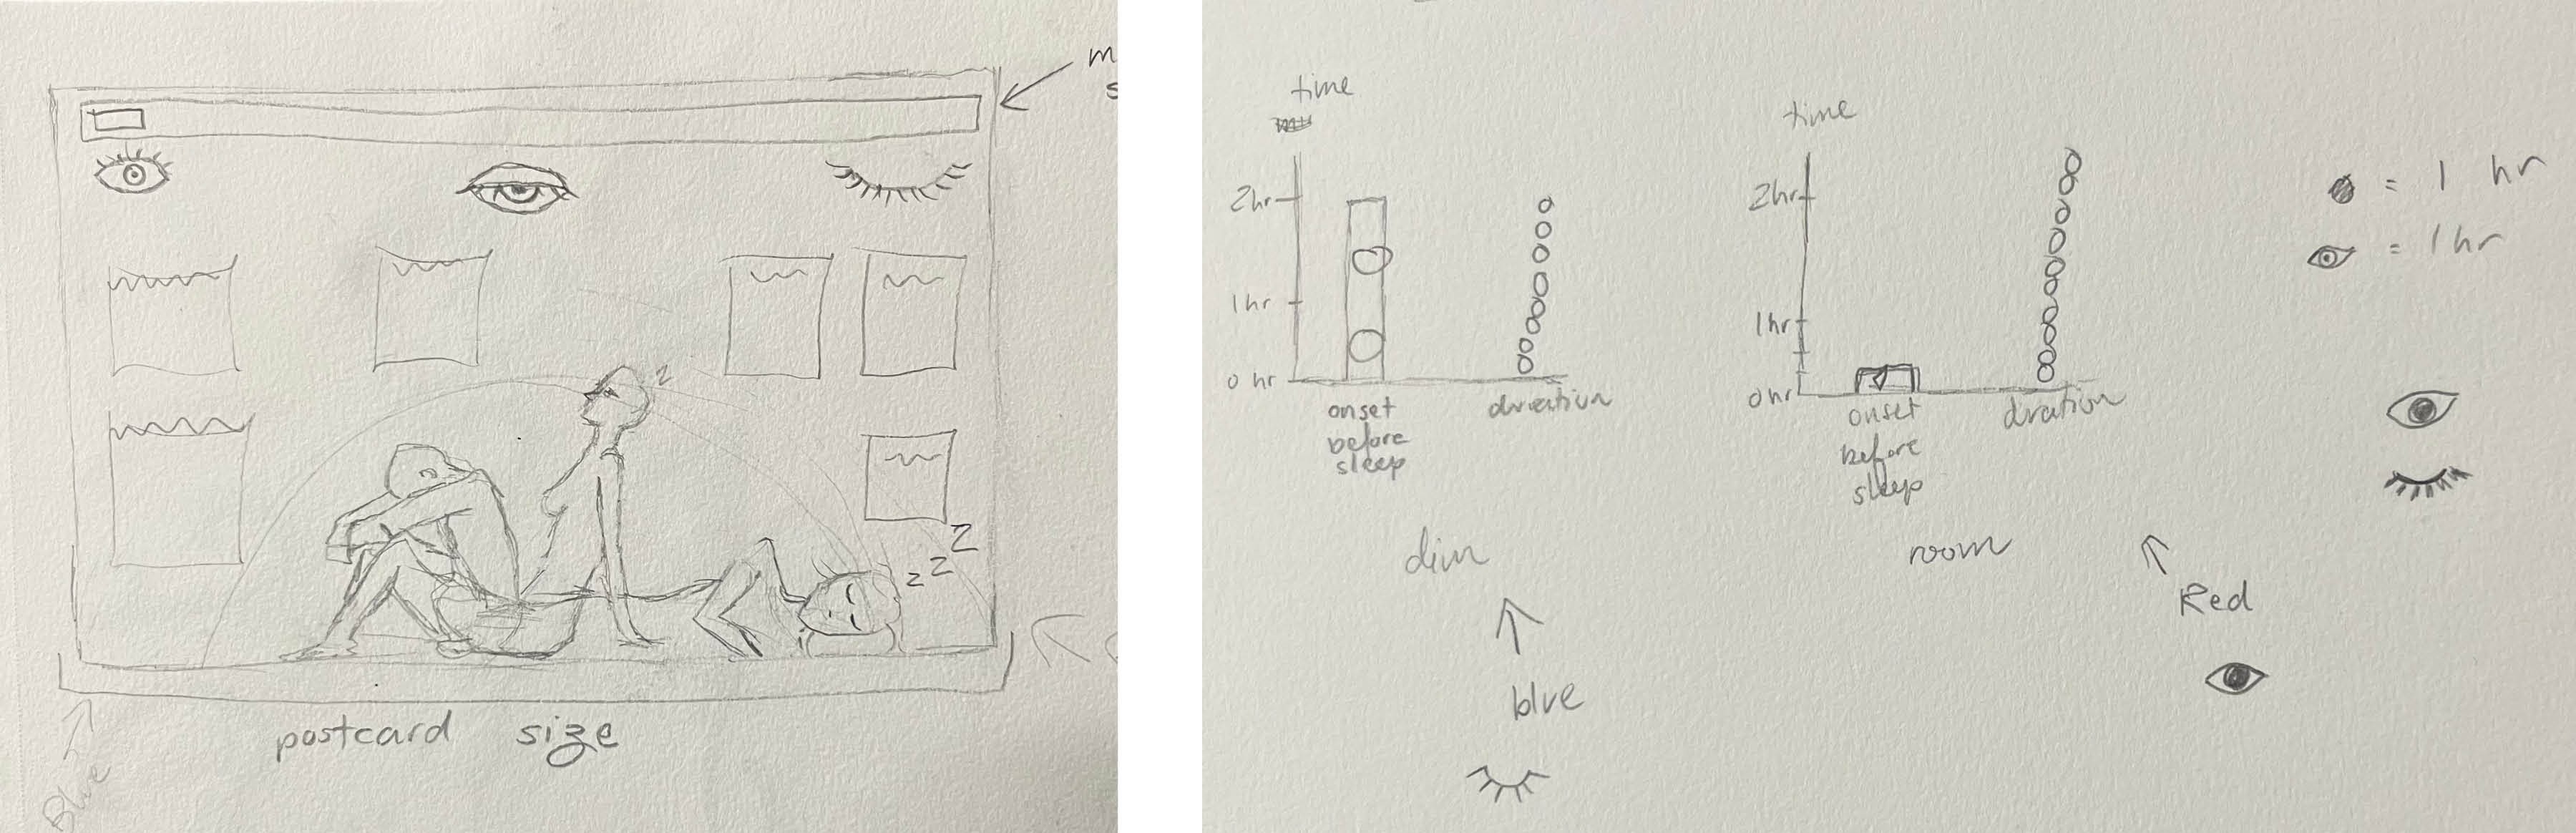 m
s
z
z z z
postcard size
Blue
time
2hr
1hr
0 hr
onset
before
sleep
duration
dim
blue
time
2hr
1hr
0hr
onset
before
sleep
duration
room
Red
= 1 hr
= 1 hr